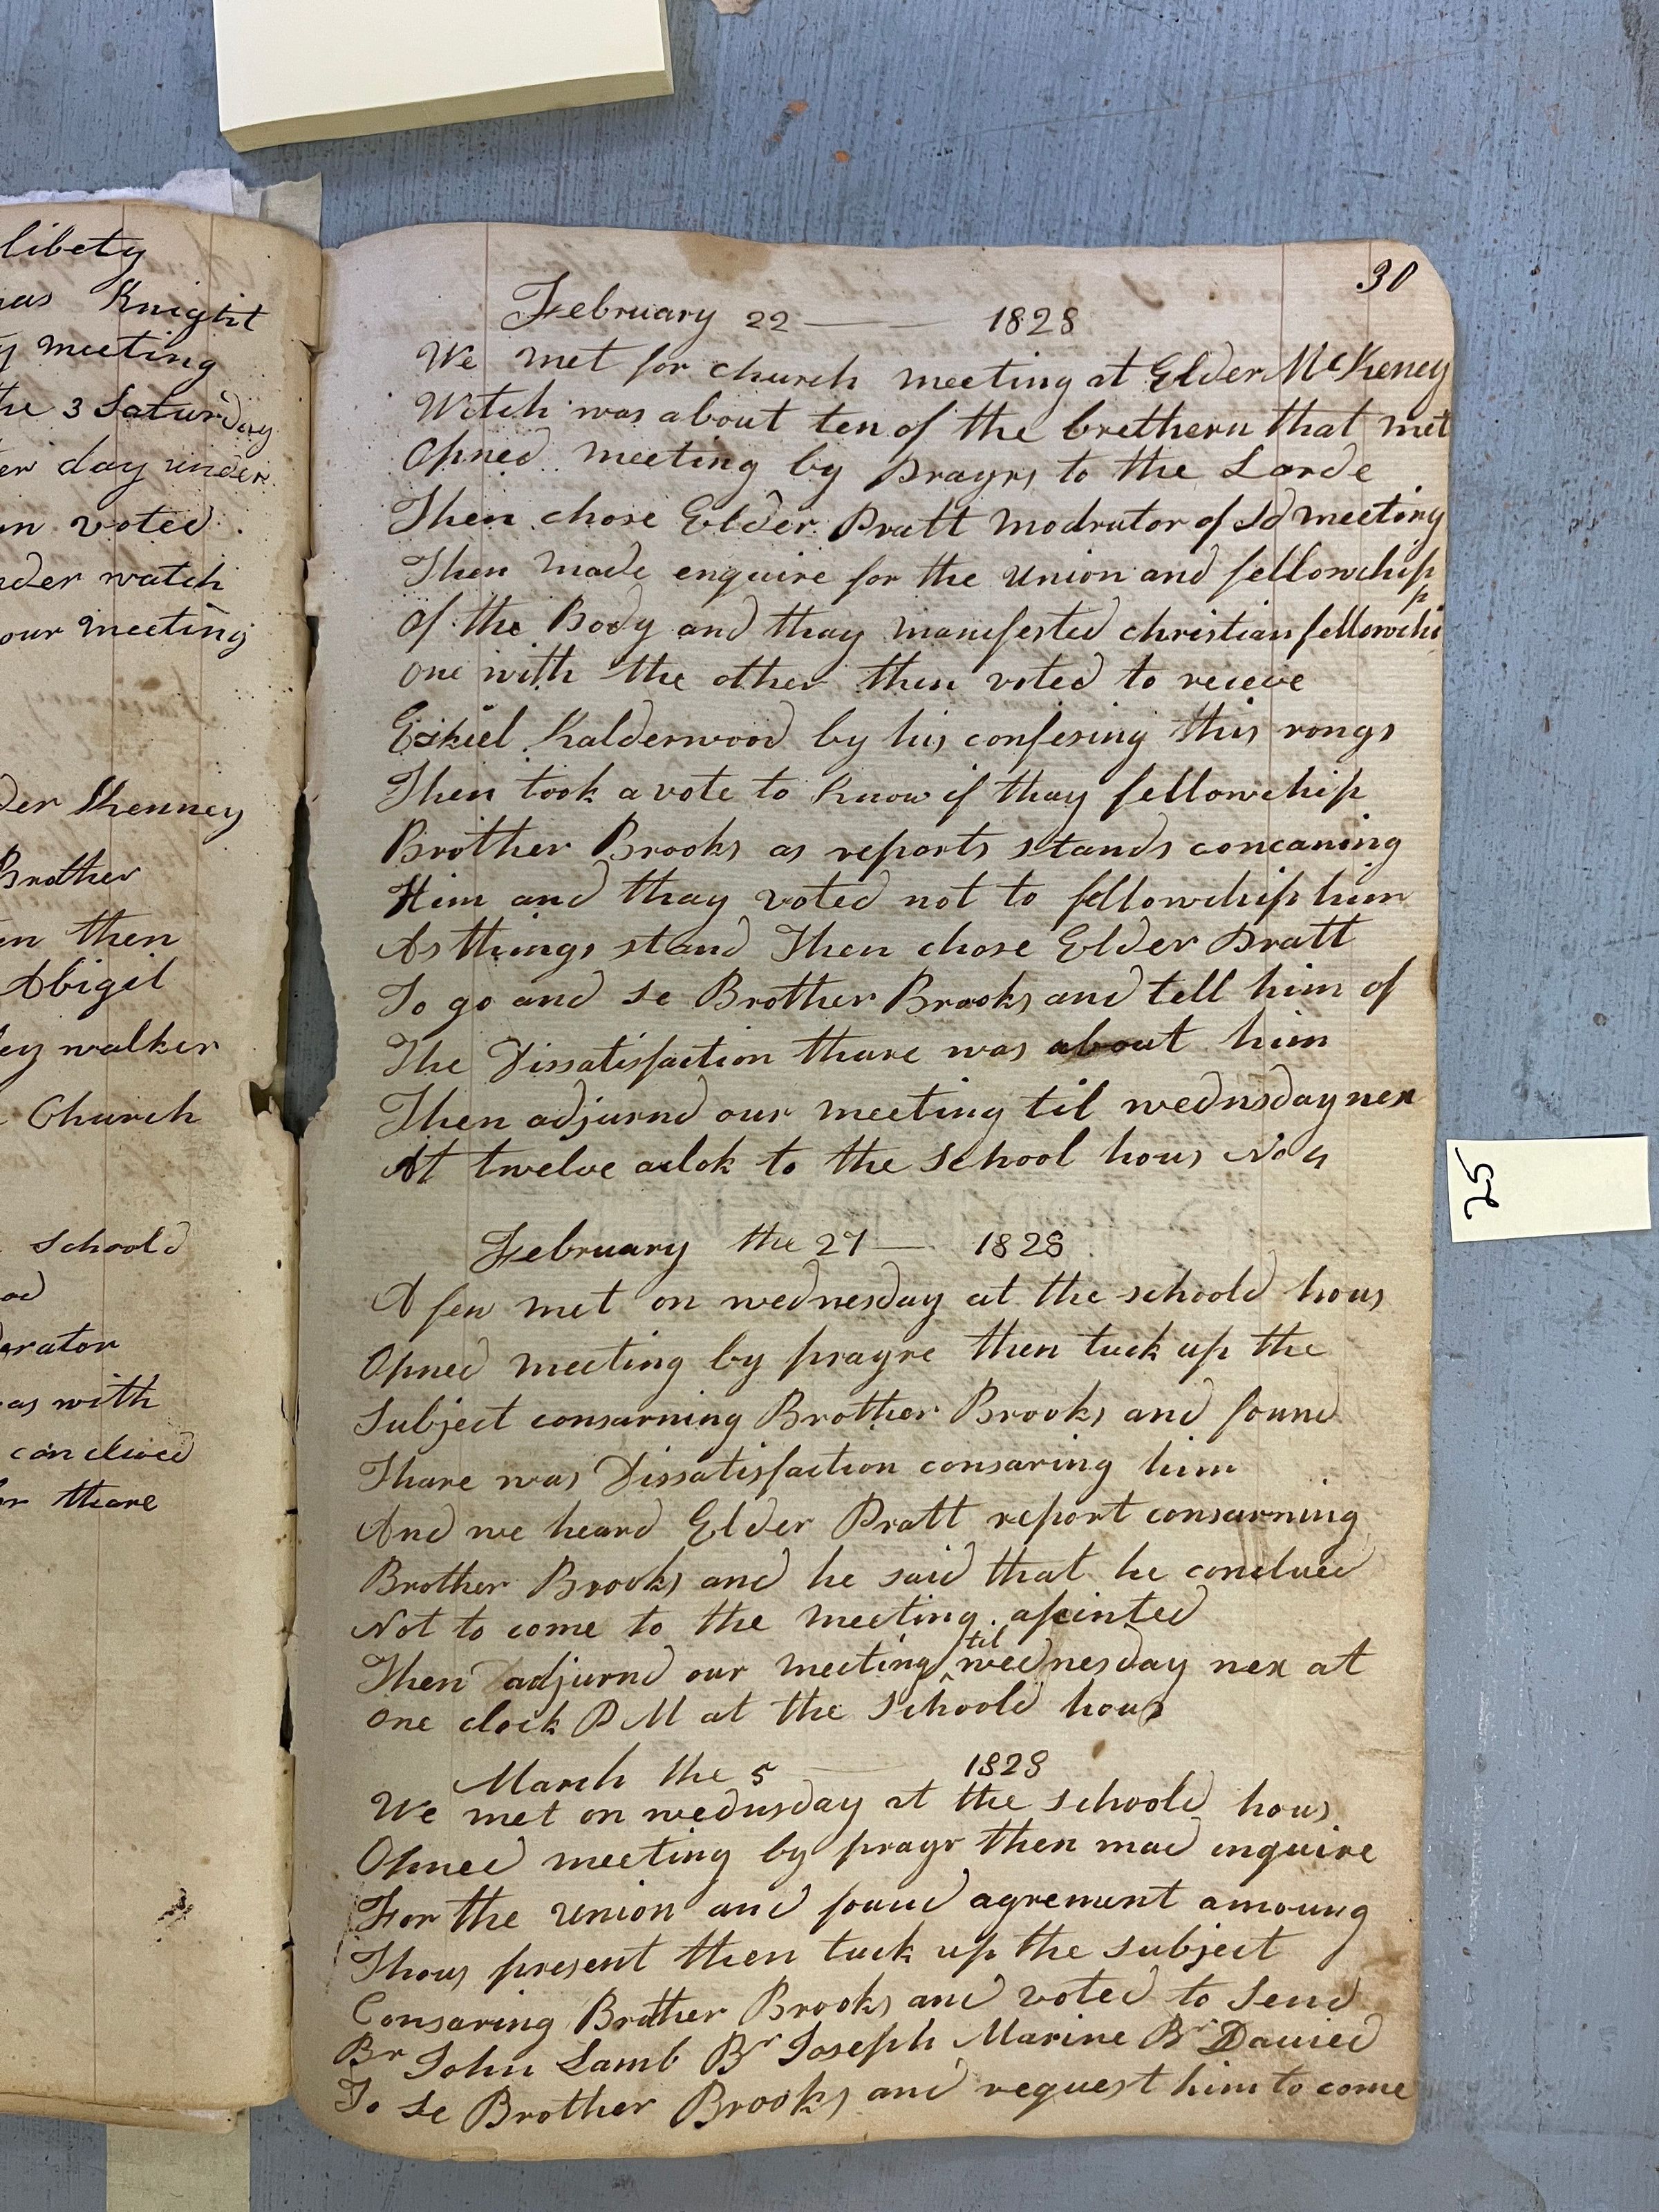 libety
Knight
meeting
the 3 Saturday
day under
voted
watch
our meeting
Brother
then
Abigil
walker
Church
Schoold
as with
thare
30
February 22 — 1828
We met for church meeting at Elder McKeney
Witch was about ten of the brethern that met
Opned meeting by prayrs to the Lorde
Then chose Elder Pratt modrator of Sd meeting
Then made enquire for the union and fellowship
Of the Body and thay manifested christian fellowship
One with the other then voted to recieve
Ezikiel Kalderwood by his confesing this rongs
Then took a vote to know if thay fellowship
Brother Brooks as reports stands concaning
Him and thay voted not to fellowship him
As things stand Then chose Elder Pratt
To go and se Brother Brooks and tell him of
The Dissatisfaction thare was about him
Then adjurnd our meeting til wednsday nex
At twelve aclok to the School hous No 4
February the 27 — 1828
A few met on wednesday at the schoold hous
Opned meeting by prayre then tuck up the
Subject consarning Brother Brooks and found
Thare was Dissatisfaction consaring him
And we heard Elder Pratt report consarning
Brother Brooks and he said that he conclued
Not to come to the meeting apointed
Then adjurnd our meeting til wednesday nex at
One clock P M at the Schoold hous
March the 5 — 1828
We met on wednsday at the schoold hous
Opned meeting by prayr then mad enquire
For the union and found agrement amoung
Thous present then tuck up the subject
Consaring Brother Brooks and voted to Send
Br John Lamb Br Joseph Marine Br Davied
To se Brother Brooks and request him to come
25